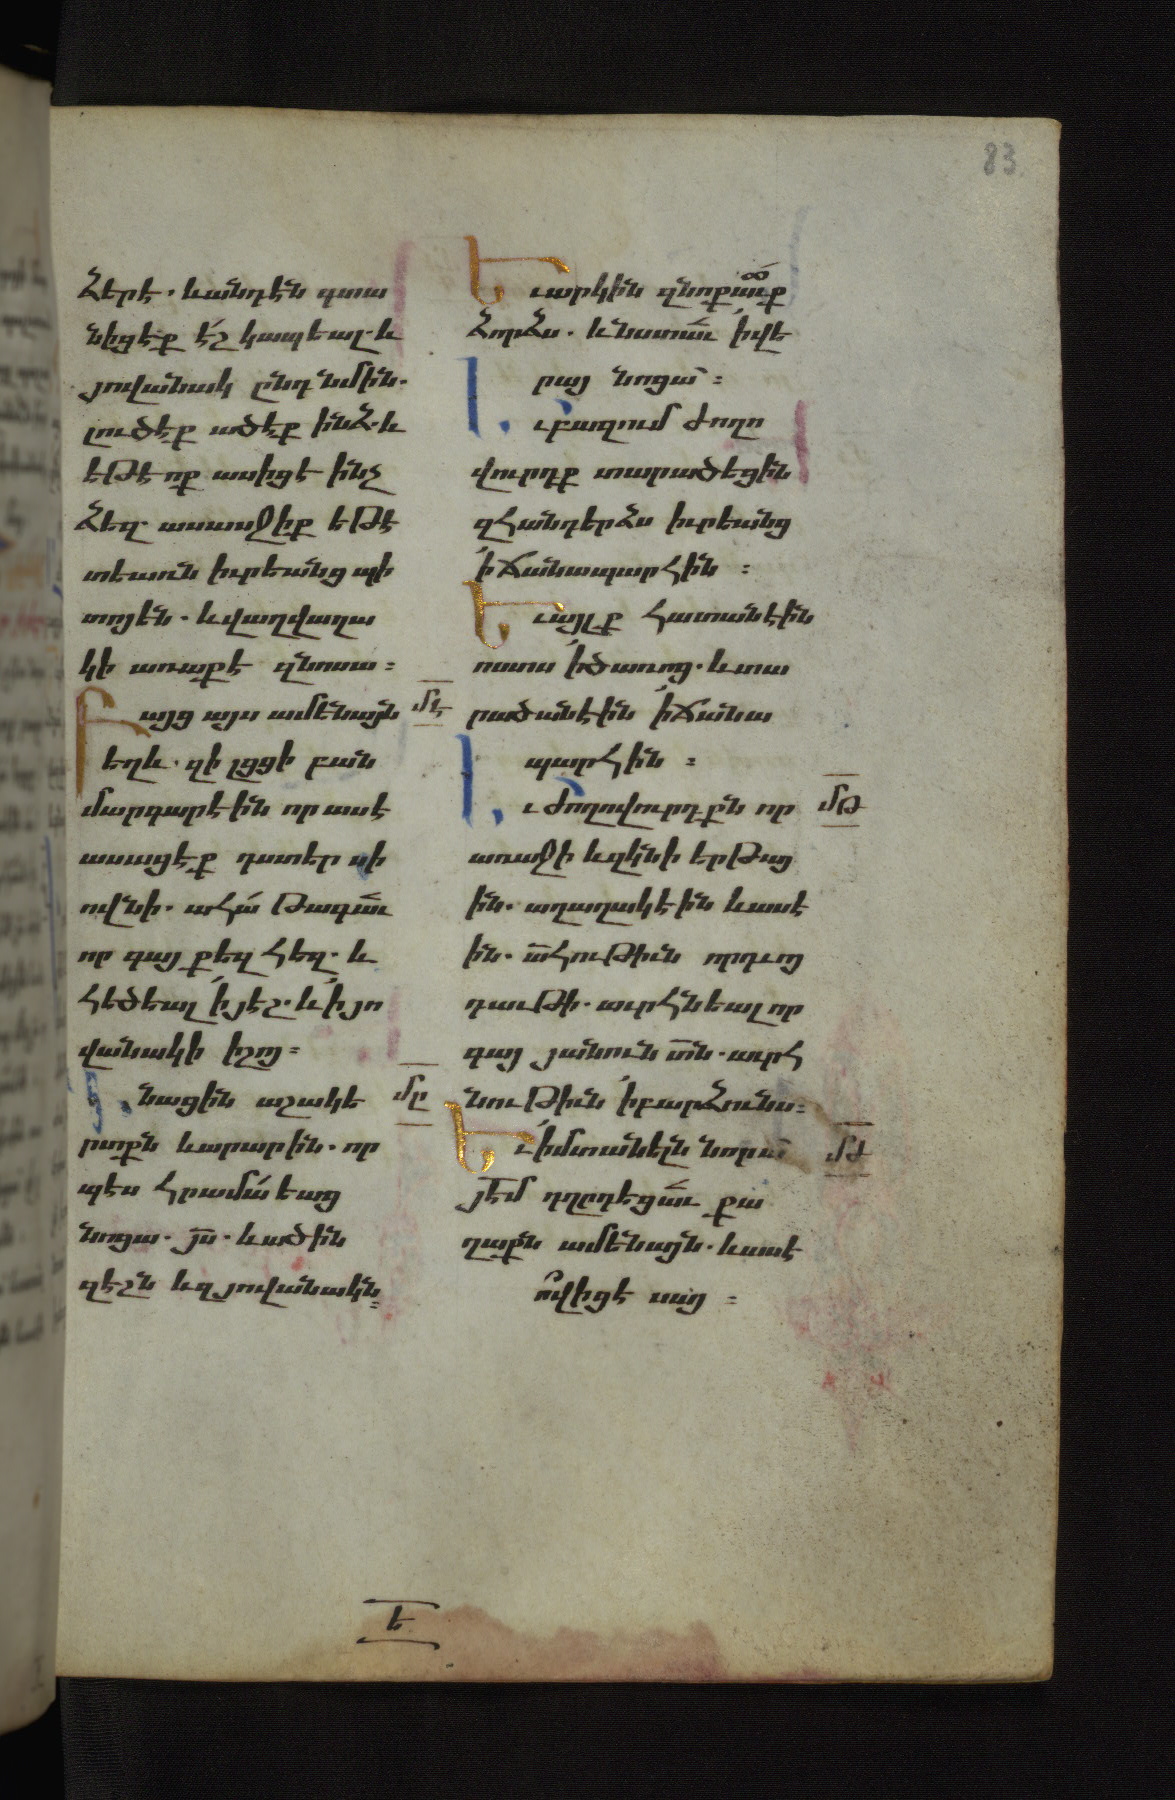 83
ձերէ. և անդէն գտա
նիցէք է՛շ կապեալ. և
յովանակ ընդ նմին.
լուծէք ածէք ինձ. և
եթէ ոք ասիցէ ինչ
ձեզ. ասասջիք եթէ
տեառն իւրեանց պի
տոյեն. և վաղվաղա
կի առաքէ զնոսա :
Բայց այս ամենայն մէ
եղև. զի լցցի բան
մարգարէին որ ասէ
ասացէք դստեր սի
ովնի. ահա՛ թագա՛ւ
որ գայ քեզ հեզ. և
հեծեալ ՛ի յէշ. և ՛ի յո
վանակի իշոյ :
Գնացին աշակե մը
րտքն և արարին. որ
պես հրամա՛եաց
նոցա. յս. և ածին
զէշն և զյովանակն :
Եւ արկին զնոքա՛ւք
ձորձս. և նստա՛ւ ՛ի վե
րայ նոցա :
Եւ բազում ժողո
վուրդք տարածեցին
զհանդերձս իւրեանց
՛ի ճանապարհին :
Եւ այլք հատանէին
ոստս ՛ի ծառոց. և տա
րածանէին ՛ի ճանա
պարհին :
Եւ ժողովուրդքն որ մթ
առաջի և զկնի երթայ
ին. աղաղակէին և ասէ
ին. ովհութիւն որդւոյ
դաւթի. աւրհնեալ որ
գայ յանուն տն. աւրհ
նութիւն ՛ի բարձունս :
Եւ ՛ի մտանելն նորա մժ
յէմ դղրդեցա՛ւ քա
ղաքն ամենայն. և ասէ
ո՞վ իցէ սայ :
Ե